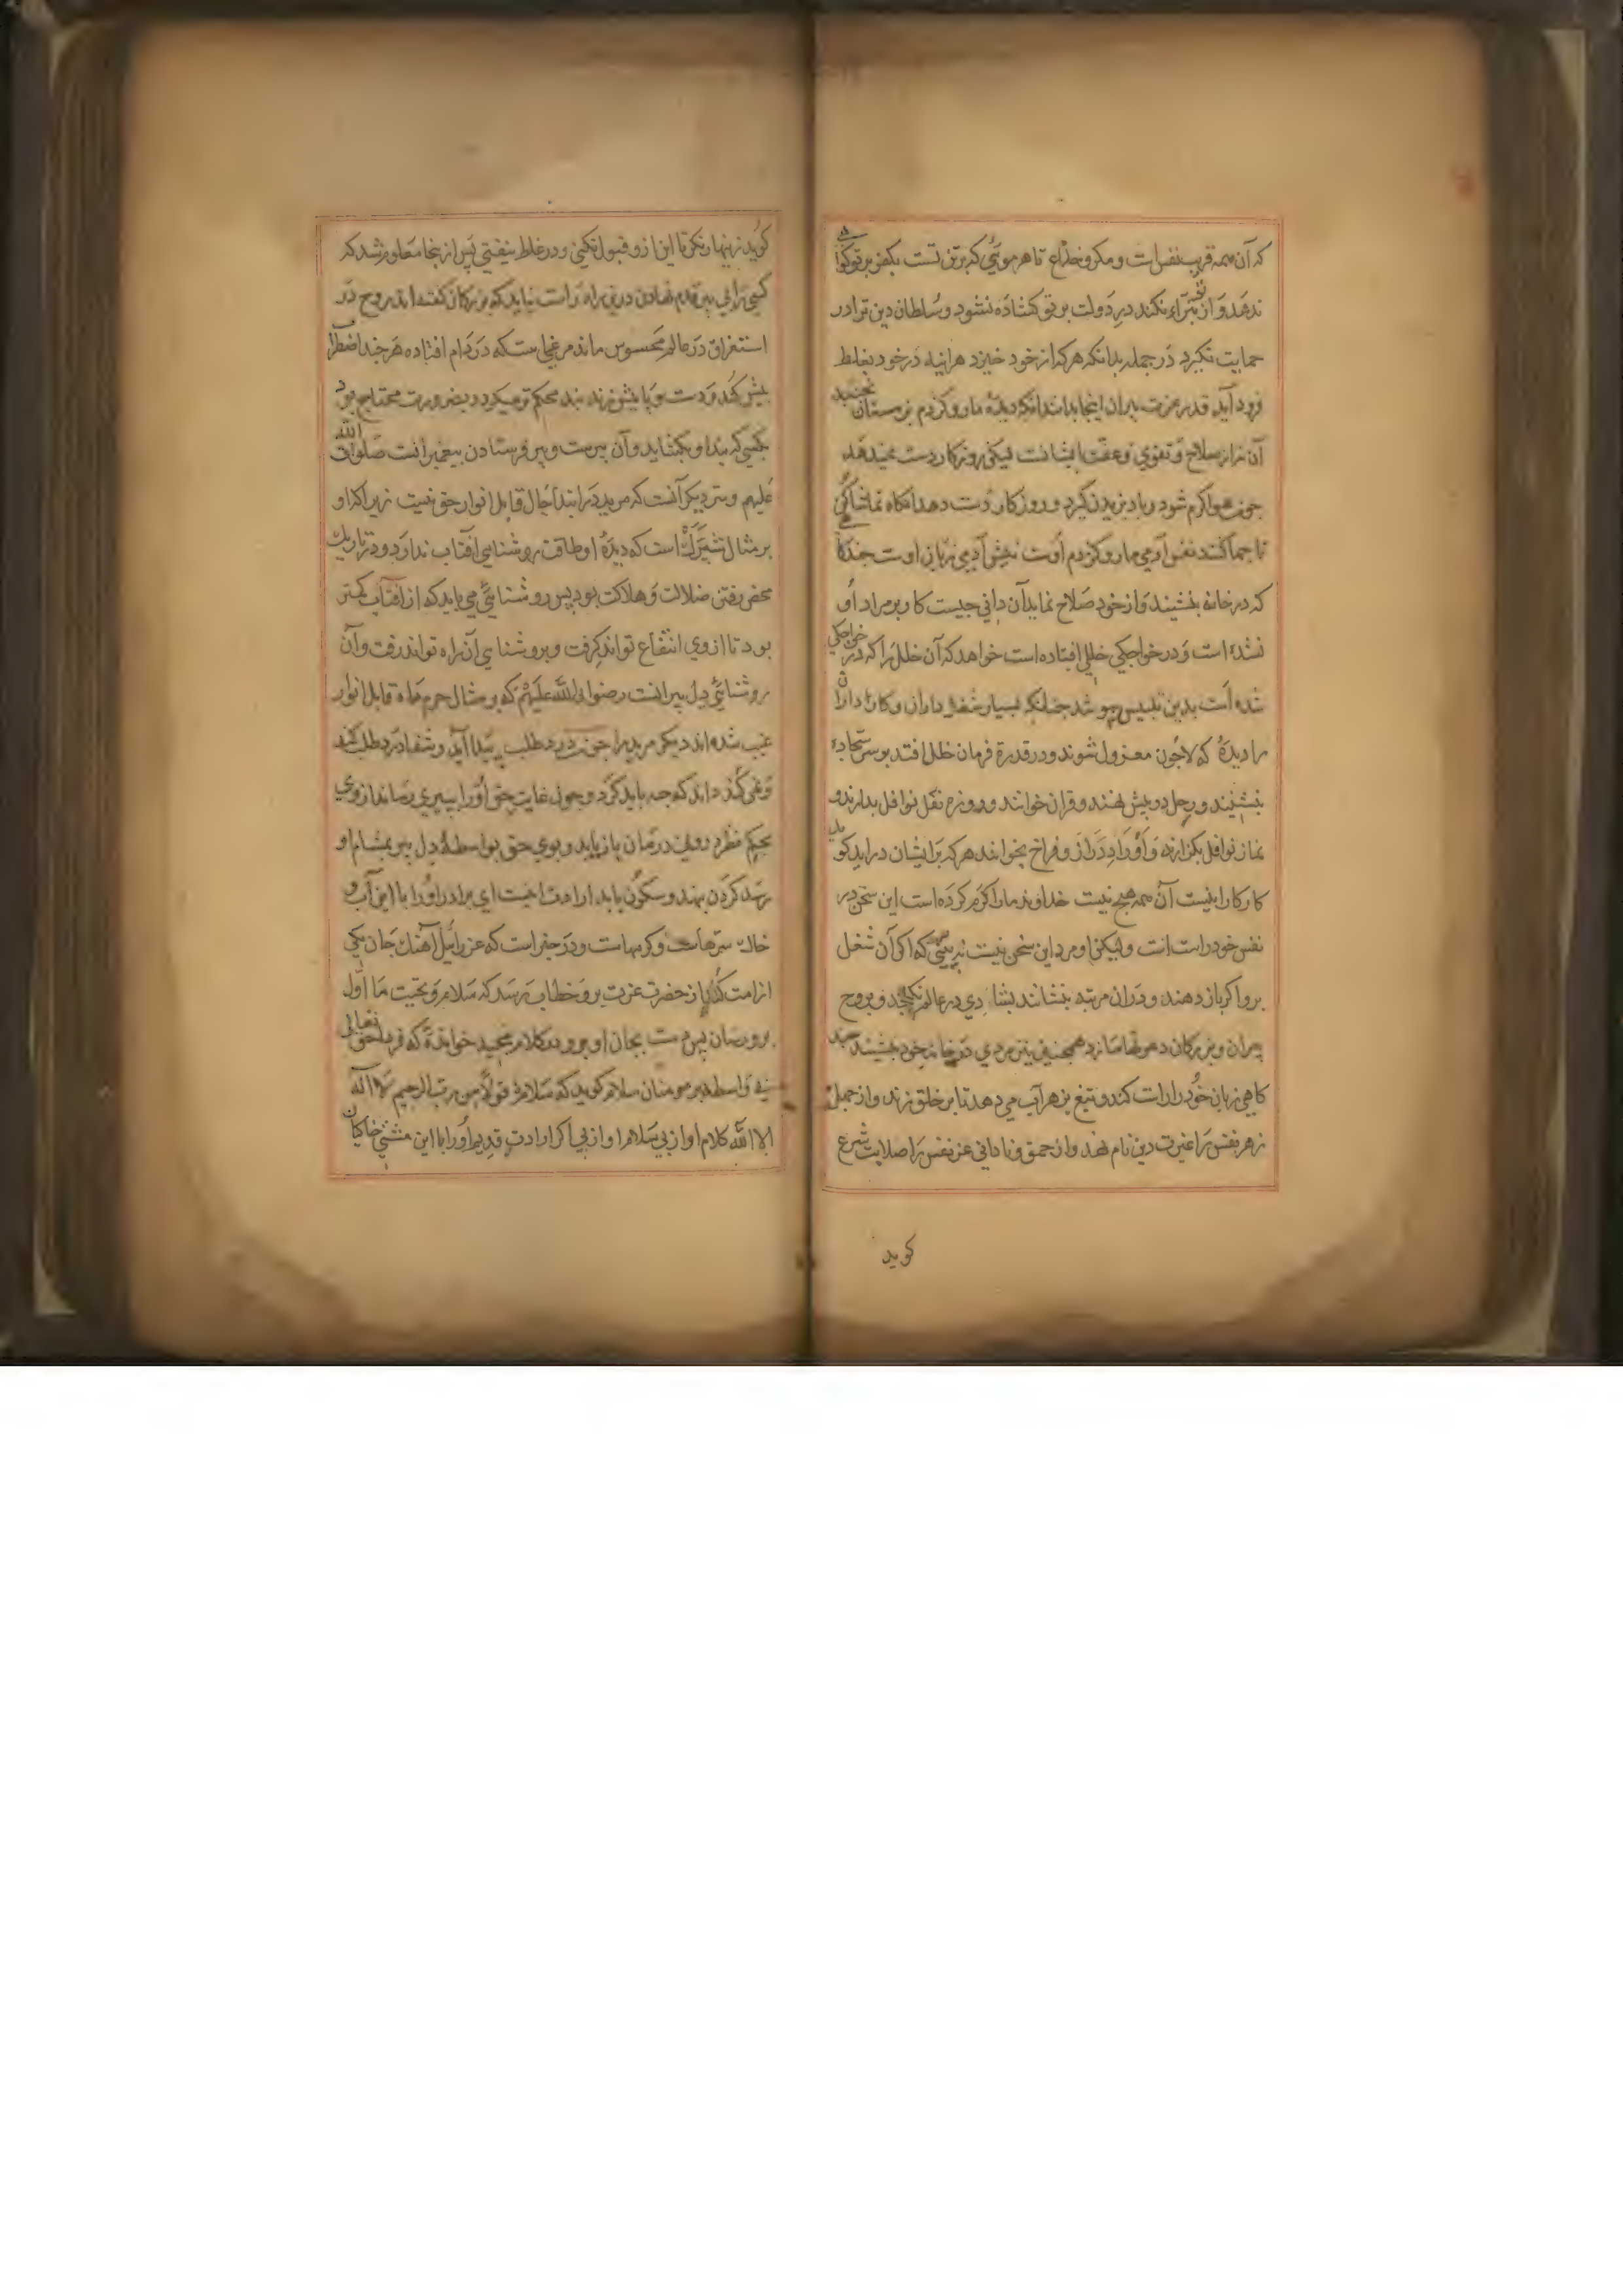 که آن همه فریب نفس است و مکر و خداع تا هر موئی که بر تن تست بکفر بر تو گواهی
ندهد و از تو تبرّاء نکند در دولت بر تو کشاده نشود و سلطان دین ترا در
حمایت نکیرد در جمله بدانکه هر که از خود خیزد هراینه در خود بغلط
فرود آید قدر عزت پیران اینجا بدانند انکه دیدهٔ مار و کزدم زمستان نجنبد
آن نه از صلاح و تقوی و عفت ایشانست لیکن روزکار دست نمیدهد
چون هوا کرم شود و باد وزیدن کیرد و روزکار دست دهد آنکاه تماشا کنی
تا چها کنند نفس آدمی مار و کزدم اوست نیش آدمی زبان اوست چندکاه
که در خانه بنشیند و از خود صلاح نماید آن دانی چیست کار بر مراد او
نشده است و در خواجکی خللی افتاده است خواهد که آن خلل را که در خواجکی
شده است بدین تلبیس بپوشد چنانکه بسیار شغل داران و کارداران
را دیدهٔ که چون معزول شوند و در قدرة فرمان خلل افتد بر سر سجاده
بنشینند و رحل در پیش نهند و قران خوانند و روزه نفل نوافل بدارند و
نماز نوافل بکزارند و اوراد دراز و فراخ بخوانند هر که بر ایشان در اید کویند
کار کار اینست آن همه هیچ نیست خداوند ما را کرم کرده است این سخن در
نفس خود راست است ولیکن او مرد این سخن نیست نه بینی که اکر آن شغل
بدو اکر باز دهند و در ان مرتبه بنشانند بشادی در عالم نکنجد و بروح
پیران و بزرکان دعوتها سازد همچنین نیز مردی در خانه خود بنشیند چند
کاهی زبان خود را راست کند و تیغ بزهر آب می دهد تا بر خلق زند و از جهل
زهر نفس را غیرت دین نام نهد و از حمق و نادانی عز نفس را صلابت شرع
کوید
کوید زینهار نکر تا این از و قبول نکنی و در غلط نیفتی پس از ینجا معلوم شد که
کسی را بی پیر قدم نهادن درین راه راست نیاید که بزرکان کفته اند روح در
استغراق در عالم محسوس مانند مرغی است که در دام افتاده هر چند اضطراب
بیش کند و دست و پا بیش زند بند محکم تر میکردد و بضرورت محتاج بود
بکسی که بند او بکشاید و آن پیر است و سر فرستادن پیغمبرانست صلوات الله
علیهم و سر دیکر آنست که مرید در ابتدا حال قابل انوار حق نیست زیرا که او
بر مثال شپرک است که دیدهٔ او طاقت روشنایی آفتاب ندارد و در تاریک
محض رفتن ضلالت و هلاکت بود پس روشنایی می باید که از آفتاب کمتر
بود تا از وی انتفاع تواند کرفت و بروشنایی آن راه تواند رفت و آن
روشنایی دل پیرانست رضوان الله علیهم که بر مثال جرم ماه قابل انوار
غیب شده اند دیکر مرید را چون درد طلب پیدا آید و شفا درد طلب کند
و نمی داند که چه باید کرد و چون عنایت حق او را به پیری رساند از وی
بحکم نظر دوای درمان باز یابد و بوی حق بواسطهٔ دل پیر بمشام او
رسد کردن بنهد و سکون یابد ارادت اینست ای برادر او را با این آب و
خاک سرهاست و کرمهاست و در خبر است که عزرائیل آهنک جان یکی
از امت کند از حضرت عزت بدو خطاب رسد که سلام و تحیت ما اول
بدو رسان پس دست بجان او بر و در کلام مجید خواندهٔ که فردا حق تعالی
بی واسطه بر مومنان سلام کوید که سلام قولا من رب الرحیم لا اله
الا الله کلام او ازلی سلام او ازلی اکر ارادت قدیم او را با این مشتی خاکیان